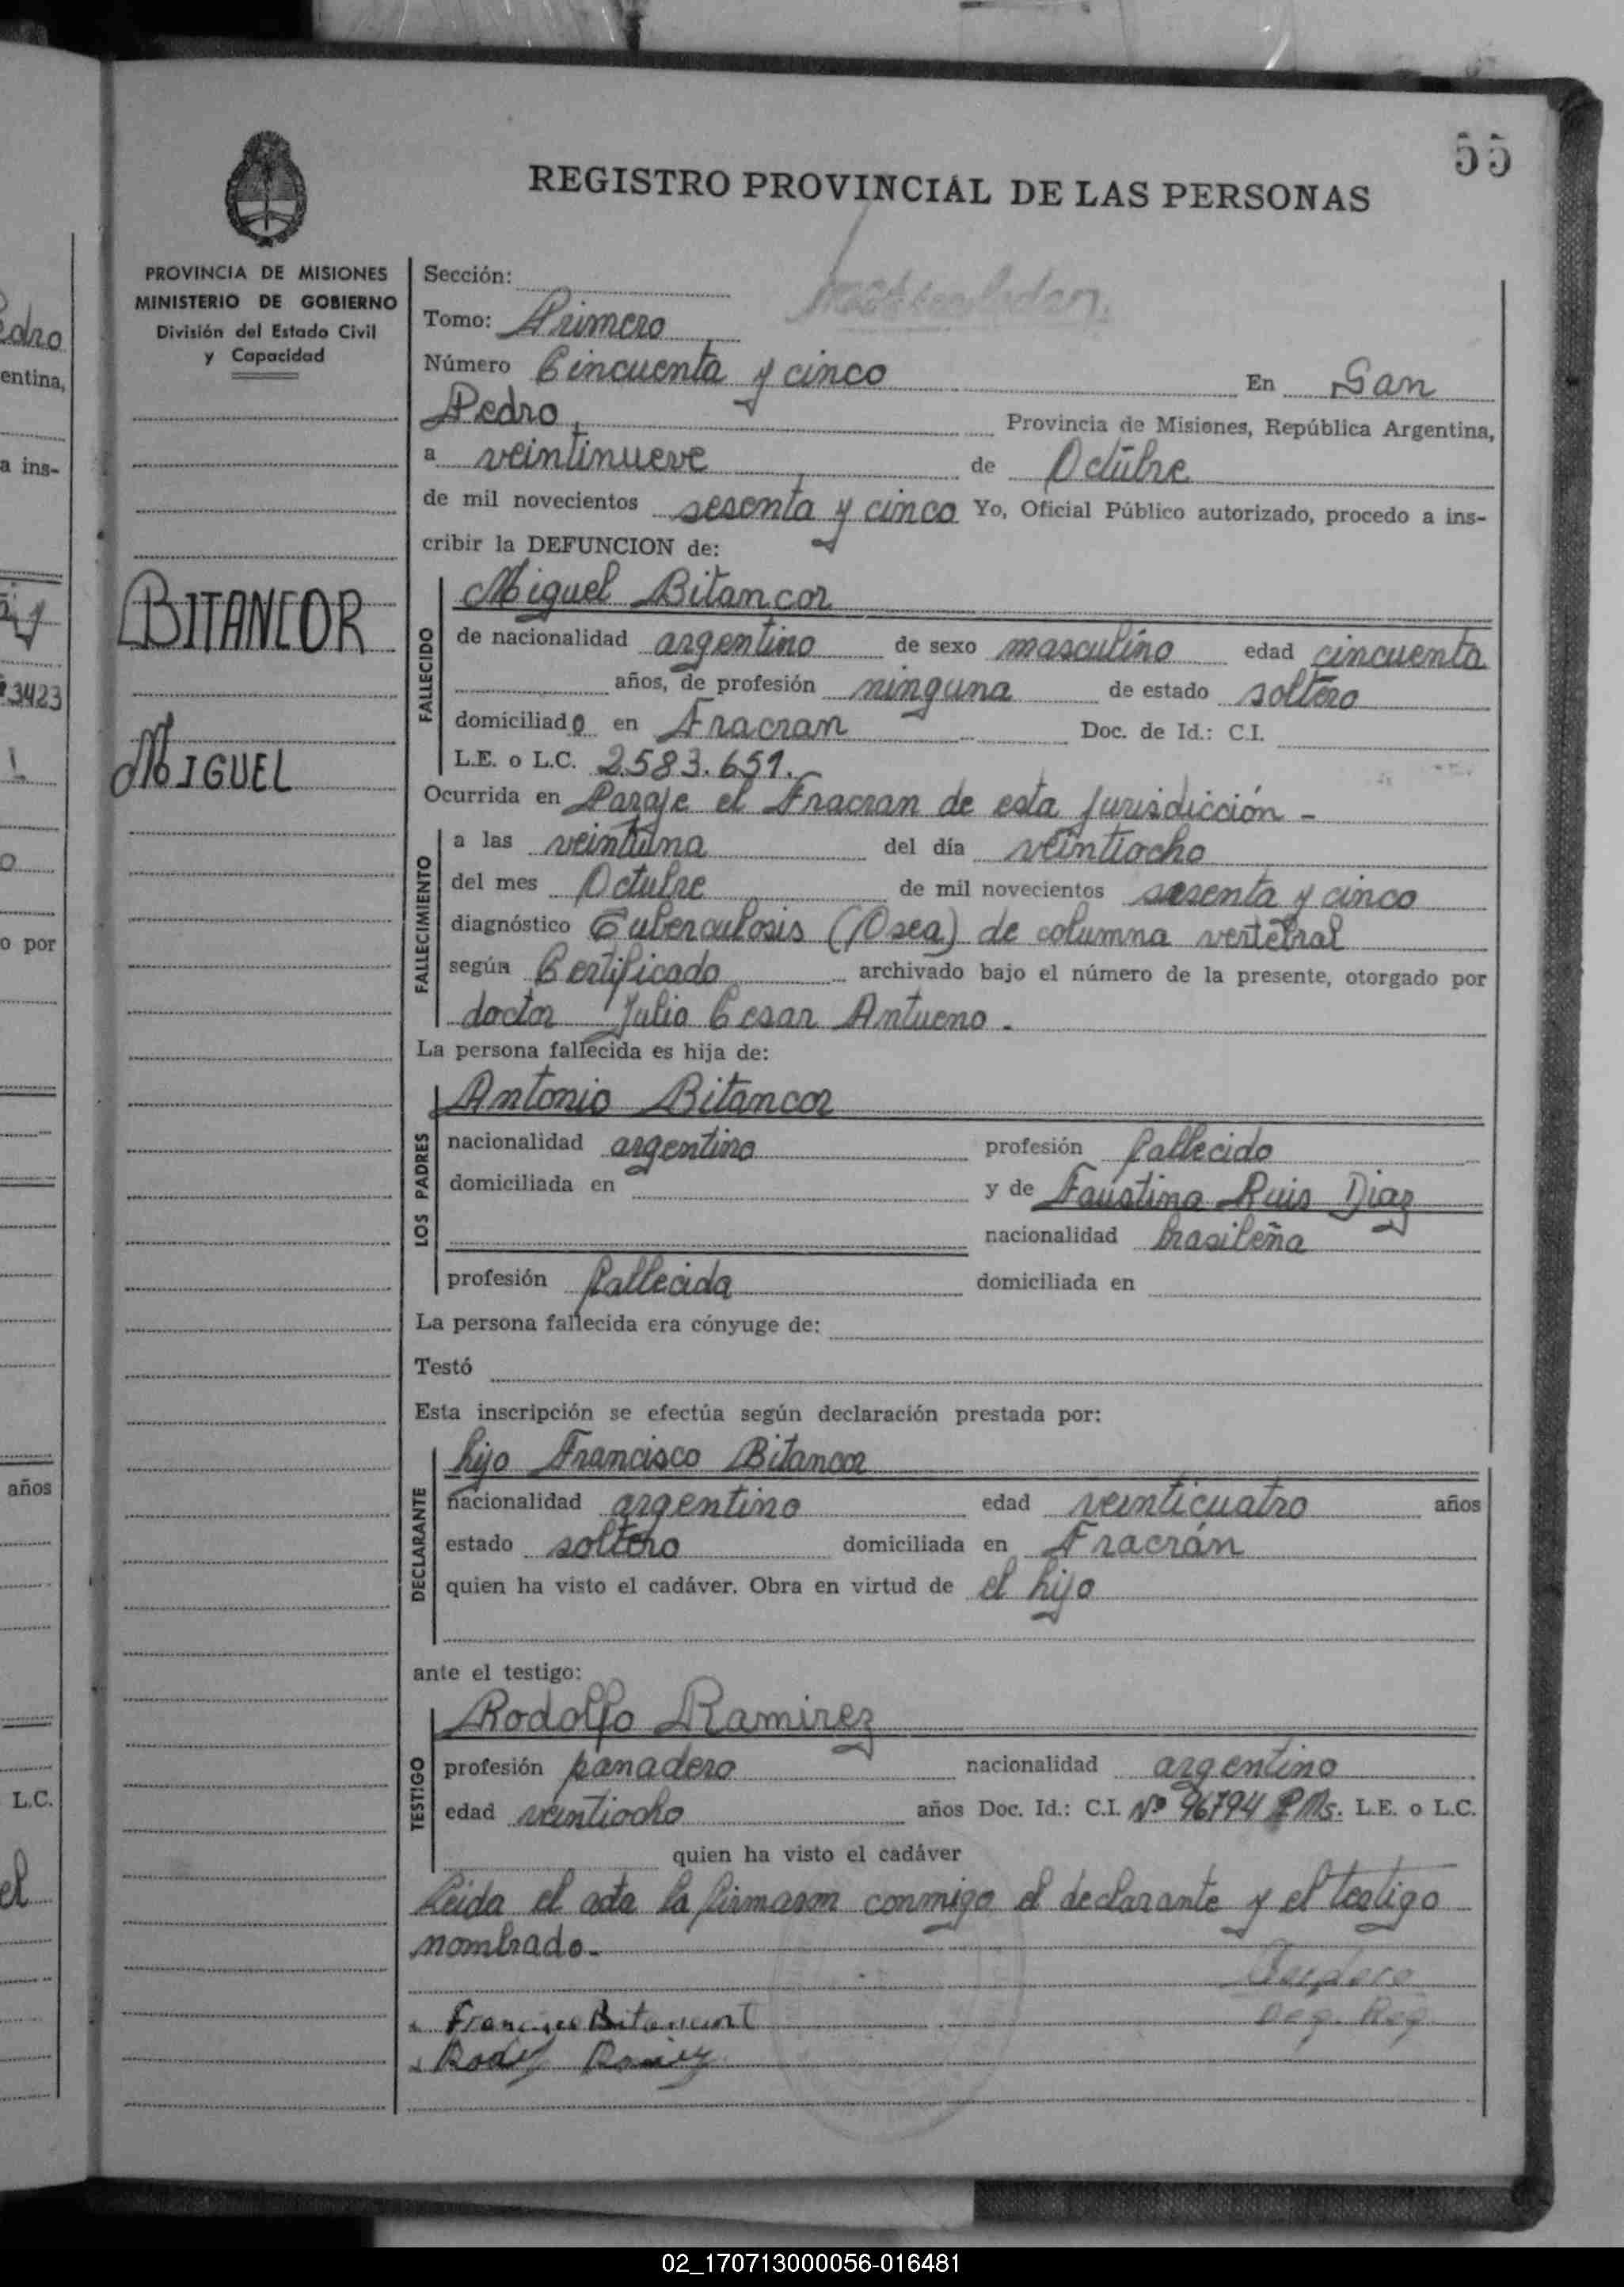 55
REGISTRO PROVINCIAL DE LAS PERSONAS
PROVINCIA DE MISIONES
MINISTERIO DE GOBIERNO
División del Estado Civil
y Capacidad
BITANCOR
MIGUEL
Sección:
Tomo: Primero
Número Cincuenta y cinco En San
Pedro Provincia de Misiones, República Argentina,
a veintinueve de Octubre
de mil novecientos sesenta y cinco Yo, Oficial Público autorizado, procedo a ins-
cribir la DEFUNCION de:
FALLECIDO
Miguel Bitancor
de nacionalidad argentino de sexo masculino edad cincuenta
años, de profesión ninguna de estado soltero
domiciliado en Fracran Doc. de Id.: C.I.
L.E. o L.C. 2583.651.
Ocurrida en Paraje el Fracran de esta Jurisdicción -
FALLECIMIENTO
a las veintiuna del día veintiocho
del mes Octubre de mil novecientos sesenta y cinco
diagnóstico Tuberculosis (Osea) de columna vertebral
según Certificado archivado bajo el número de la presente, otorgado por
doctor Julio Cesar Antueno.
La persona fallecida es hija de:
LOS PADRES
Antonio Bitancor
nacionalidad argentino profesión fallecido
domiciliada en y de Faustina Ruis Diaz
nacionalidad brasileña
profesión fallecida domiciliada en
La persona fallecida era cónyuge de:
Testó
Esta inscripción se efectúa según declaración prestada por:
DECLARANTE
hijo Francisco Bitancor
nacionalidad argentino edad veinticuatro años
estado soltero domiciliada en Fracrán
quien ha visto el cadáver. Obra en virtud de el hijo
ante el testigo:
TESTIGO
Rodolfo Ramirez
profesión panadero nacionalidad argentino
edad veintiocho años Doc. Id.: C.I. Nº 96794 P.Ms. L.E. o L.C.
quien ha visto el cadáver
Leida el acta la firmaron conmigo el declarante y el testigo
nombrado.-
Francisco Bitancurt
edro
entina,
a ins-
3423
o por
años
L.C.
el
02_170713000056-016481